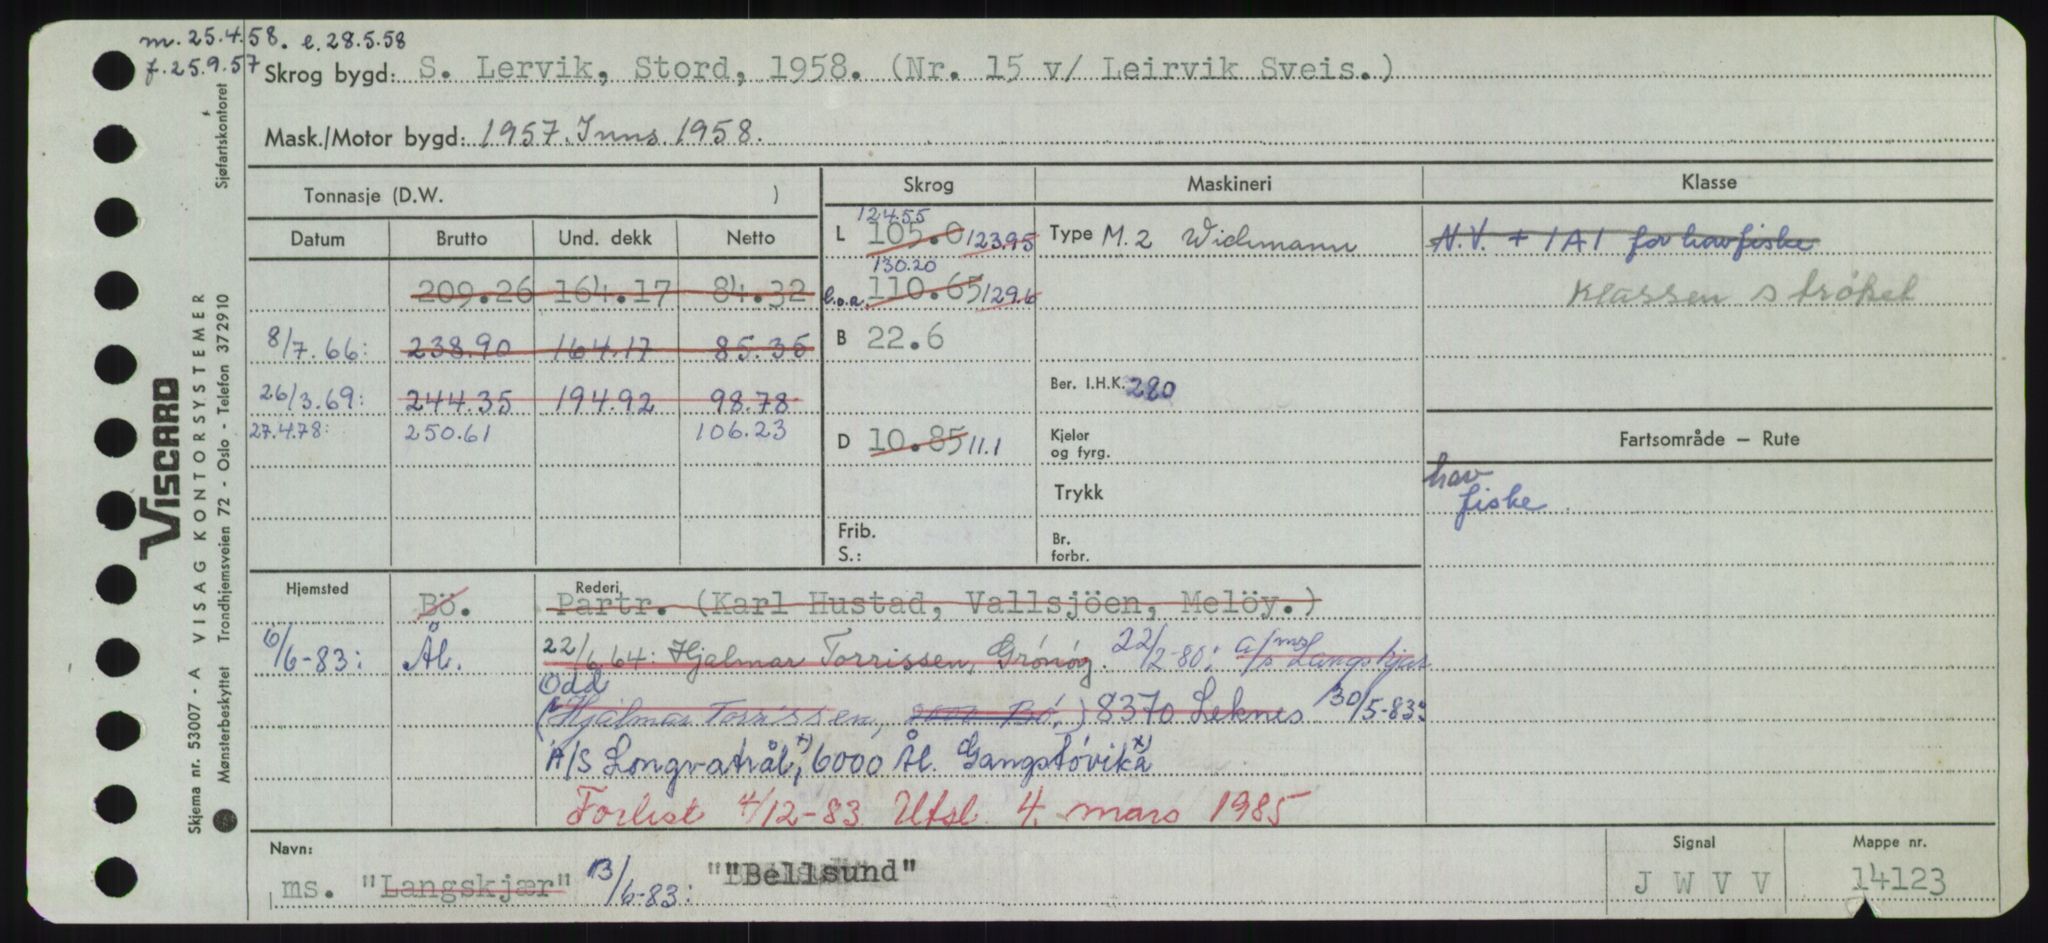 m. 25.4.58. e. 28.5.58
f. 25.9.57
Skrog bygd: S. Lervik, Stord, 1958. (Nr. 15 v/ Leirvik Sveis.)
Mask./Motor bygd: 1957. Inns. 1958.
Tonnasje (D.W. )
Skrog Maskineri Klasse
Datum Brutto Und. dekk Netto
124.55
L 105.0 123.95
Type M. 2 Wichmann
N.V. + 1A1 for havfiske
209.26 164.17 84.32
130.20
l.o.a. 110.65 129.6
Klassen strøket
8/7.66: 238.90 164.17 85.35
B 22.6
26/3.69: 244.35 194.92 98.78
Ber. I.H.K. 280
27.4.78: 250.61 106.23
D 10.85 11.1
Kjeler
og fyrg.
Fartsområde – Rute
Trykk
hav
fiske
Frib.
S.:
Br.
forbr.
Hjemsted
Rederi
Bö. Partr. (Karl Hustad, Vallsjöen, Melöy.)
6/6-83: Ål. 22/6 64: Hjalmar Torrissen, Grönöy. 22/2-80: A/S ms/ Langskjær
Odd
(Hjalmar Torrissen, Bö,) 8370 Leknes 30/5-83:
A/S Longvatrål, x) 6000 Ål. Gangstövika x)
Forlist 4/12-83 Utsl. 4. mars 1985
Navn:
Signal
Mappe nr.
ms. "Langskjær" 13/6-83: "Bellsund"
J W V V
14123
Sjøfartskontoret
VISCARD
Skjema nr. 53007 - A VISAG KONTORSYSTEMER
Mønsterbeskyttet Trondhjemsveien 72 - Oslo - Telefon 372910